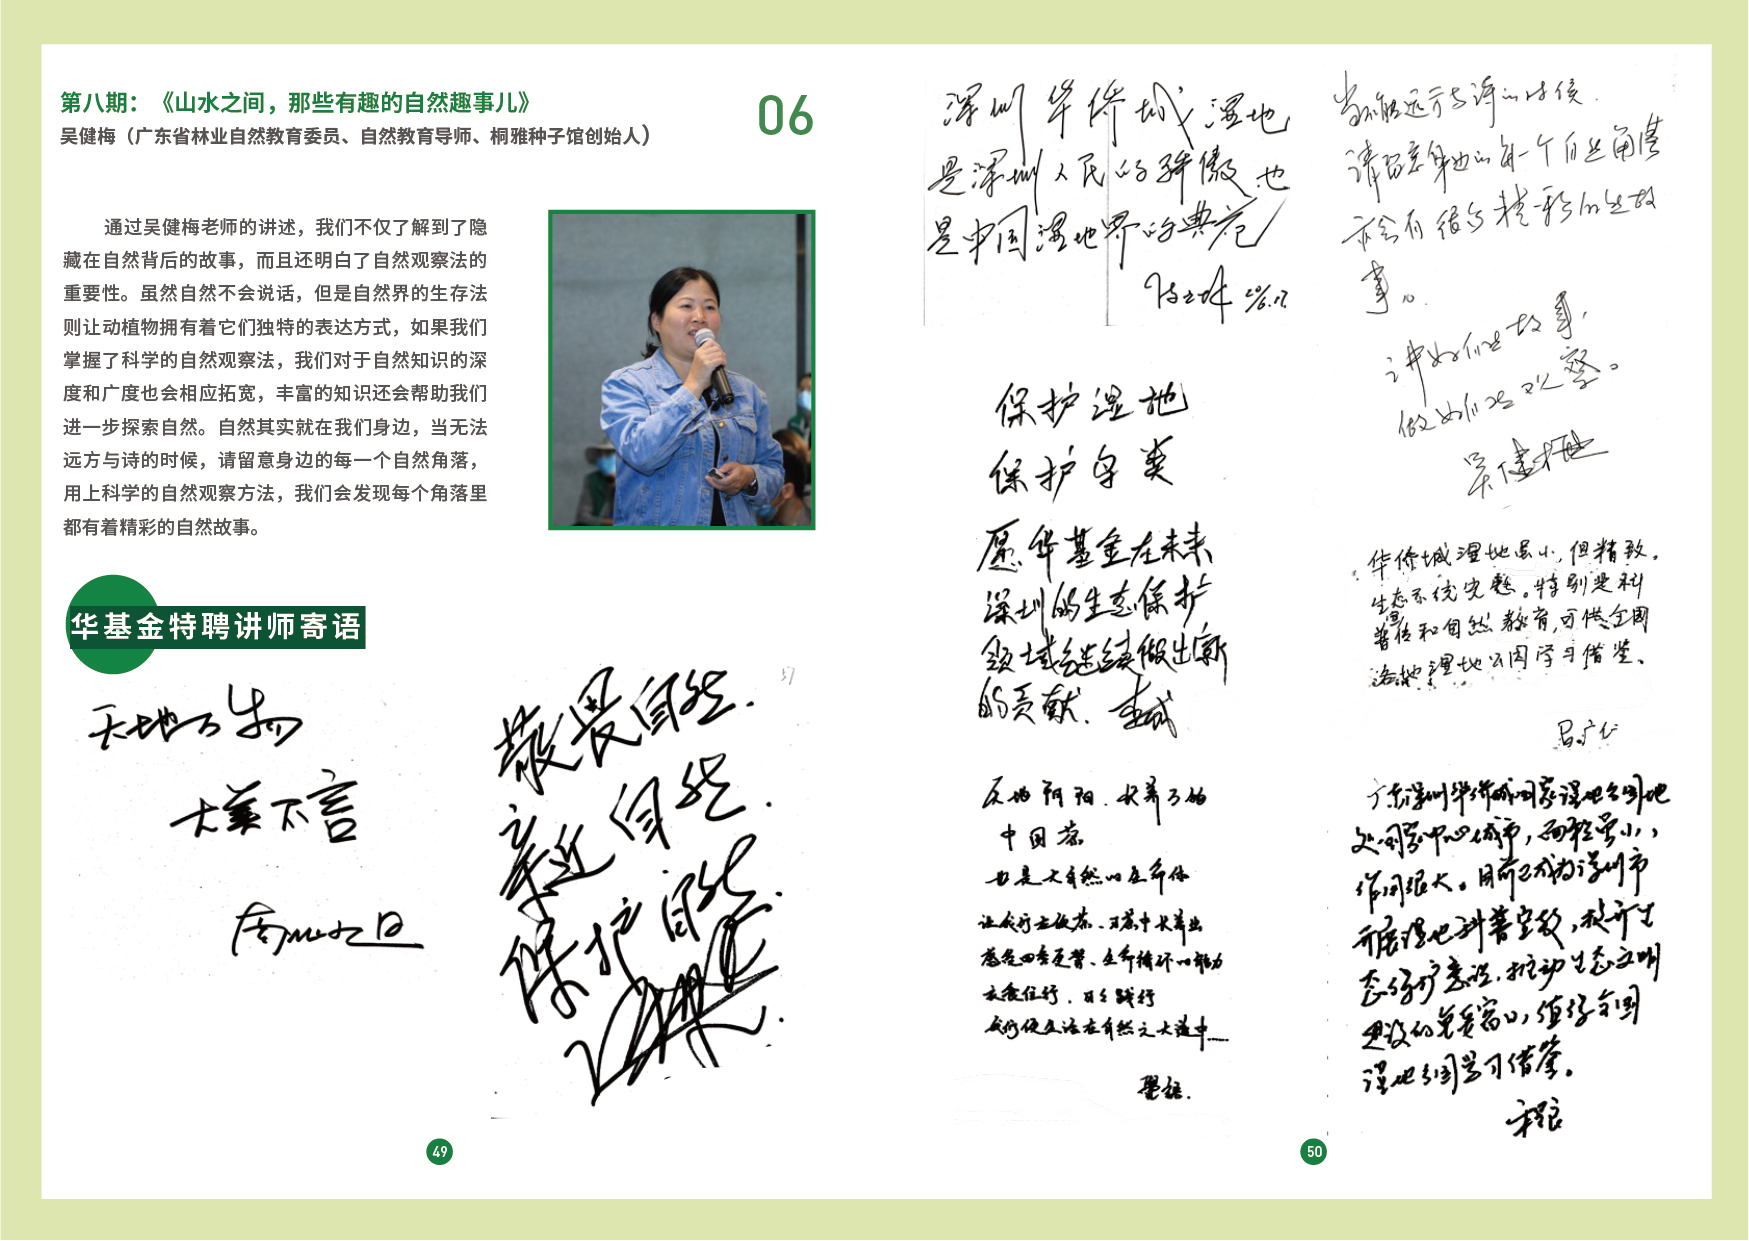 第八期：《山水之间，那些有趣的自然趣事儿》
吴健梅（广东省林业自然教育委员、自然教育导师、桐雅种子馆创始人）
06
通过吴健梅老师的讲述，我们不仅了解到了隐
藏在自然背后的故事，而且还明白了自然观察法的
重要性。虽然自然不会说话，但是自然界的生存法
则让动植物拥有着它们独特的表达方式，如果我们
掌握了科学的自然观察法，我们对于自然知识的深
度和广度也会相应拓宽，丰富的知识还会帮助我们
进一步探索自然。自然其实就在我们身边，当无法
远方与诗的时候，请留意身边的每一个自然角落，
用上科学的自然观察方法，我们会发现每个角落里
都有着精彩的自然故事。
华基金特聘讲师寄语
天地万物
大美不言
敬畏自然.
亲近自然.
保护自然.
49
深圳华侨城湿地
是深圳人民的骄傲也
是中国湿地界的典范
保护湿地
保护鸟类
愿华基金在未来
深圳的生态保护
领域继续做出新
的贡献.
天地阴阳.长养了的
中国茶
也是大自然的生命体
让我们去饮茶、习茶中长养出
感色四季更替、生命循环的能力
衣食住行.日日践行
我们便生活在自然之大道中……
当不能远方与诗的时候.
请留意身边的每一个自然角落
亦会有很多精彩的生故
事儿.
讲好们生故事,
做好们生观察。
吴健梅
华侨城湿地虽小,但精致.
生态系统完整。特别是科
普宣传和自然教育,可供全国
各地湿地公园学习借鉴.
广东深圳华侨城国家湿地公园地
处国家中心城市,面积虽小,
作用很大。目前已成为深圳市
开展湿地科普宣教,提升生
态保护意识.推动生态文明
建设的重要窗口,值得全国
湿地公园学习借鉴。
50